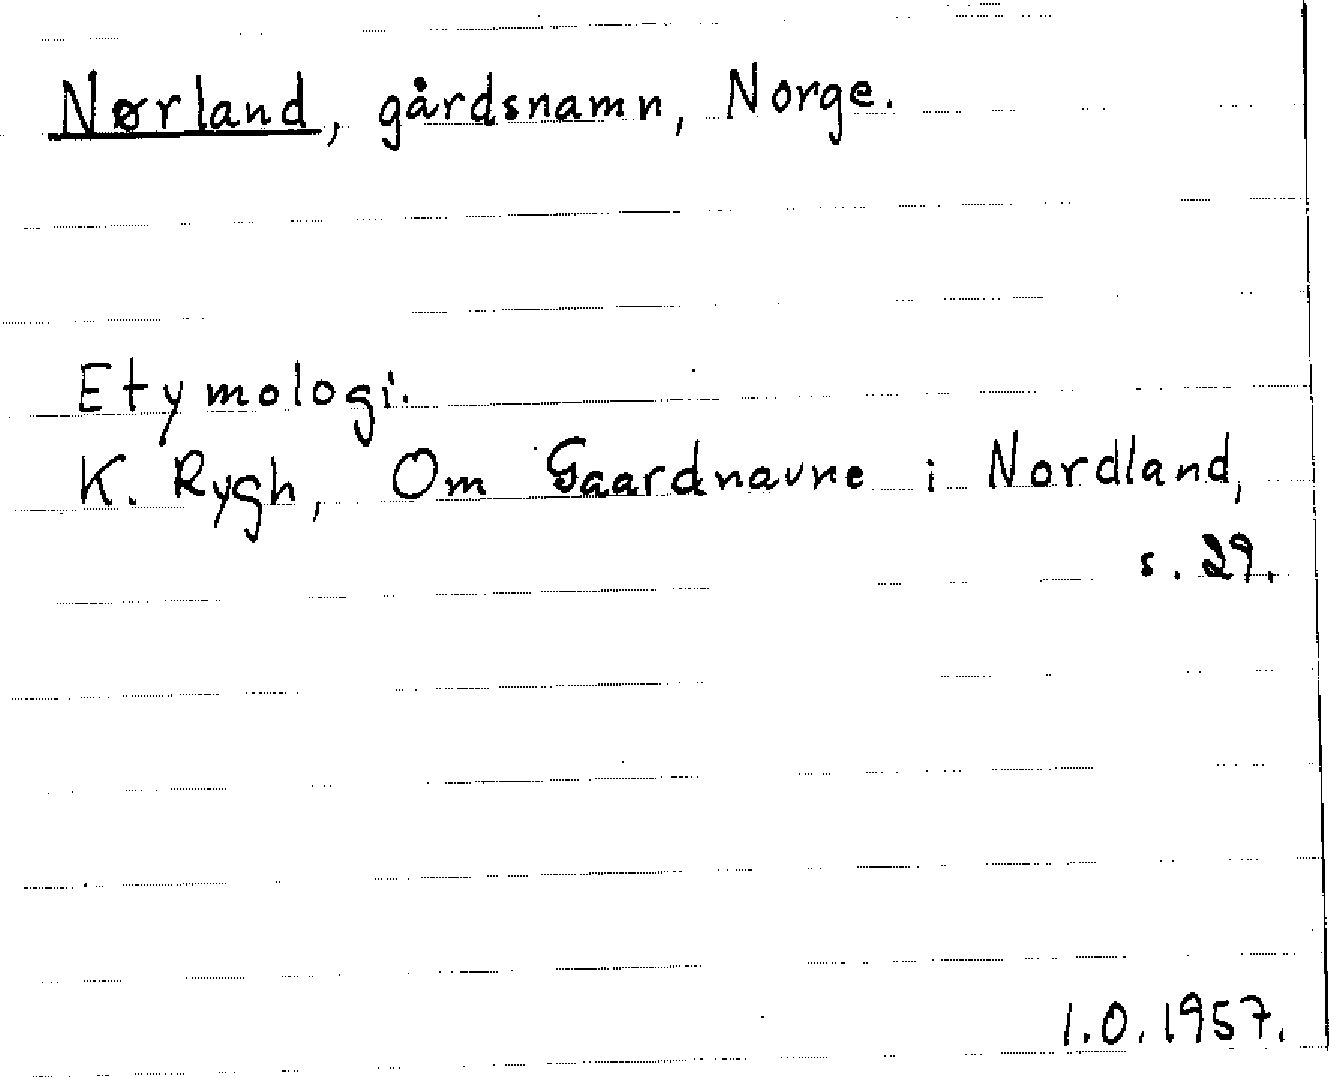 Nørland, gårdsnamn, Norge.
Etymologi.
K. Rygh, Om Gaardnavne i Nordland,
s. 29.
I.O. 1957.